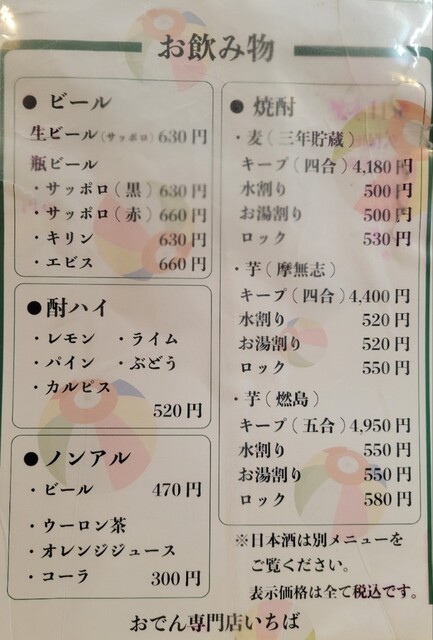 お飲み物
●ビール
生ビール(サッポロ)630円
瓶ビール
・サッポロ(黒)630円
・サッポロ(赤)660円
・キリン 630円
・エビス 660円
●酎ハイ
・レモン ・ライム
・パイン ・ぶどう
・カルピス
520円
●ノンアル
・ビール 470円
・ウーロン茶
・オレンジジュース
・コーラ 300円
●焼酎
・麦(三年貯蔵)
キープ(四合)4,180円
水割り 500円
お湯割り 500円
ロック 530円
・芋(摩無志)
キープ(四合)4,400円
水割り 520円
お湯割り 520円
ロック 550円
・芋(燃島)
キープ(五合)4,950円
水割り 550円
お湯割り 550円
ロック 580円
※日本酒は別メニューを
ご覧ください。
表示価格は全て税込です。
おでん専門店いちば